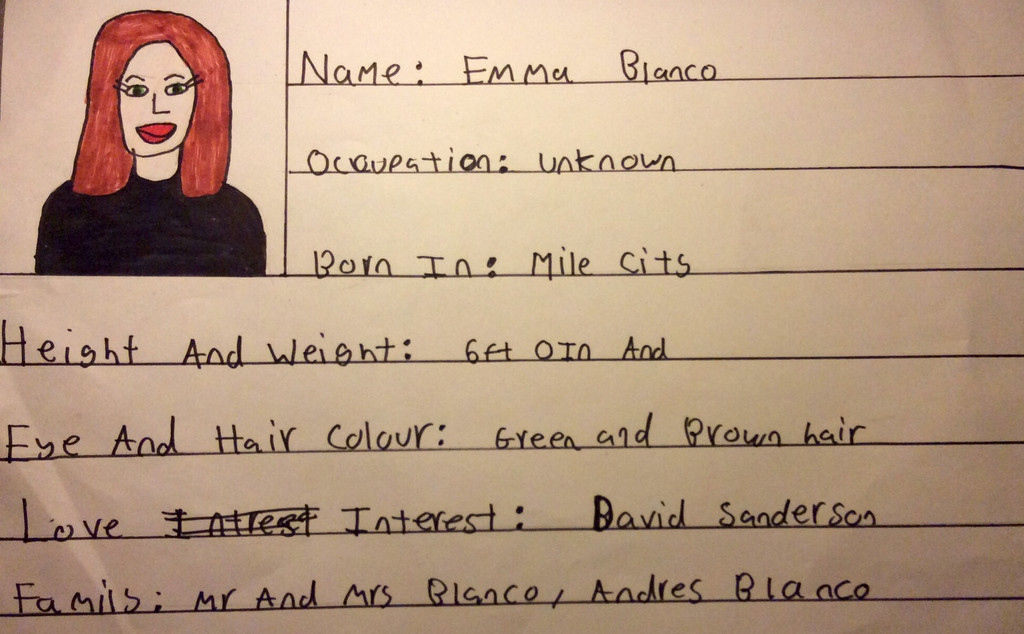 Name: Emma Blanco
Occupation: unknown
Born In: Mile City
Height And Weight: 6ft 0In And
Eye And Hair Colour: Green and Brown hair
Love Intrest Interest: David Sanderson
Family: Mr And Mrs Blanco, Andres Blanco